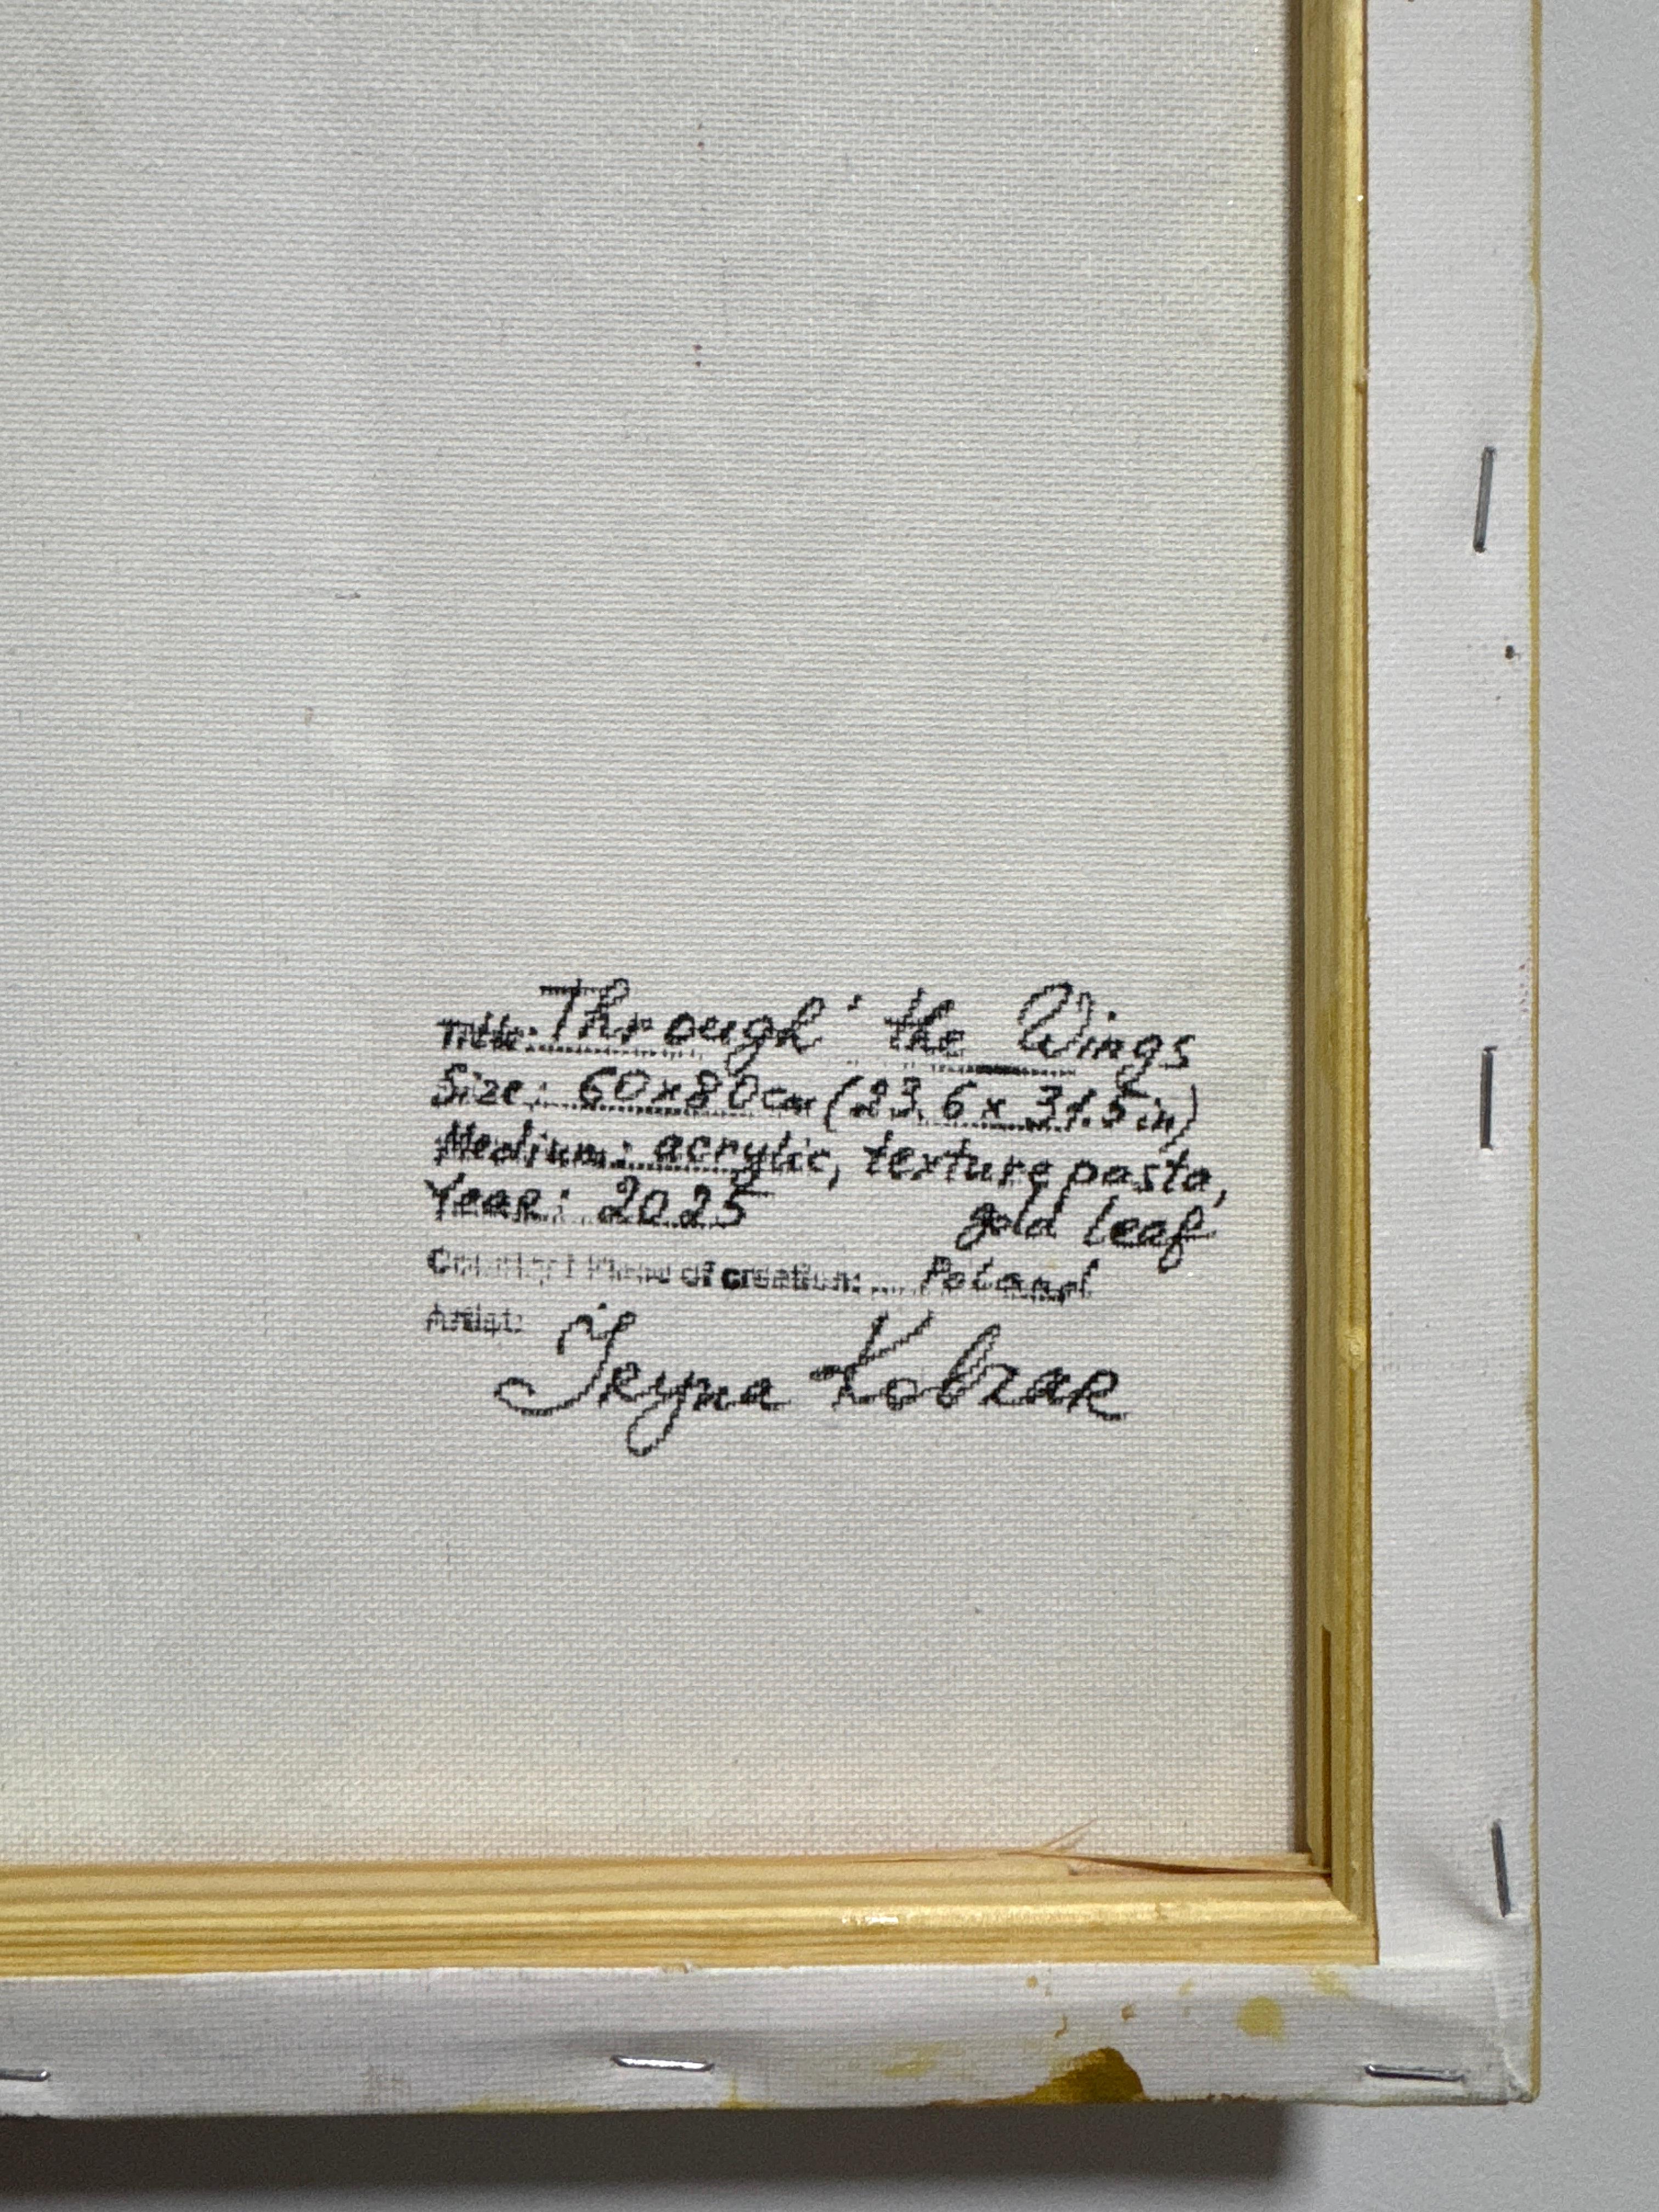 Title: Through the Wings
Size: 60x80cm (23.6 x 31.5 in)
Medium: acrylic, texture pasta,
gold leaf
Year: 2025
Country / Place of creation: Poland
Artist:
Iryna